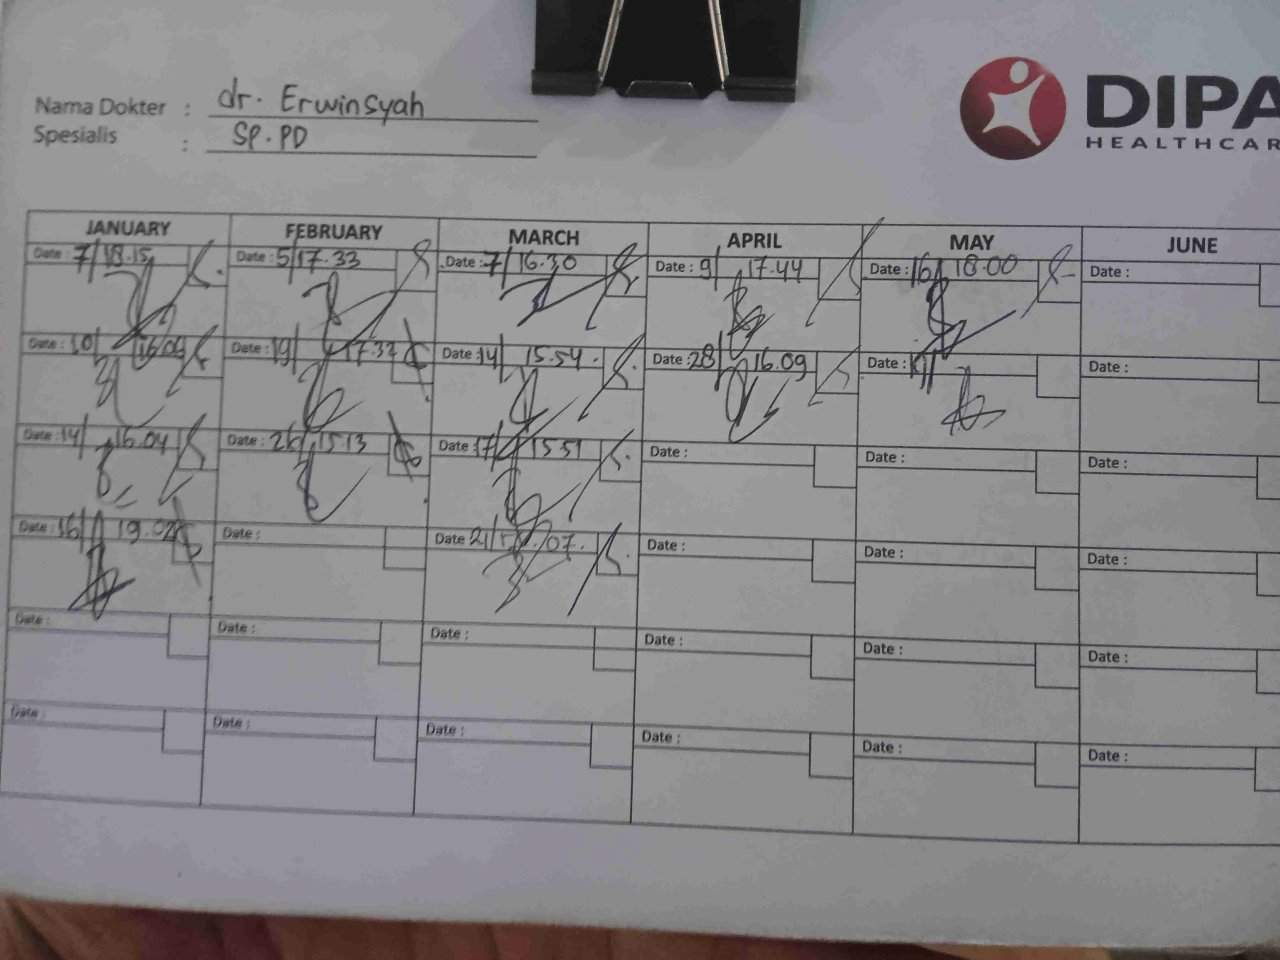 Nama Dokter : dr. Erwinsyah
Spesialis : SP.PD
DIPA
HEALTHCAR
JANUARY FEBRUARY MARCH APRIL MAY JUNE
Date : 7/ 18.15 Date : 5/ 17.33 Date : 7/ 16.30 Date : 9/ 17.44 Date : 16/ 18.00 Date :
Date : 10/ 16.09 Date : 19/ 17.37 Date : 14/ 15.54. Date : 28/ 16.09 Date : Date :
Date : 14/ 16.04 Date : 26/ 15.13 Date : 17/ 15.51 Date : Date : Date :
Date : 16/ 19.02 Date : Date 21/ 07. Date : Date : Date :
Date : Date : Date : Date : Date : Date :
Date : Date : Date : Date : Date : Date :